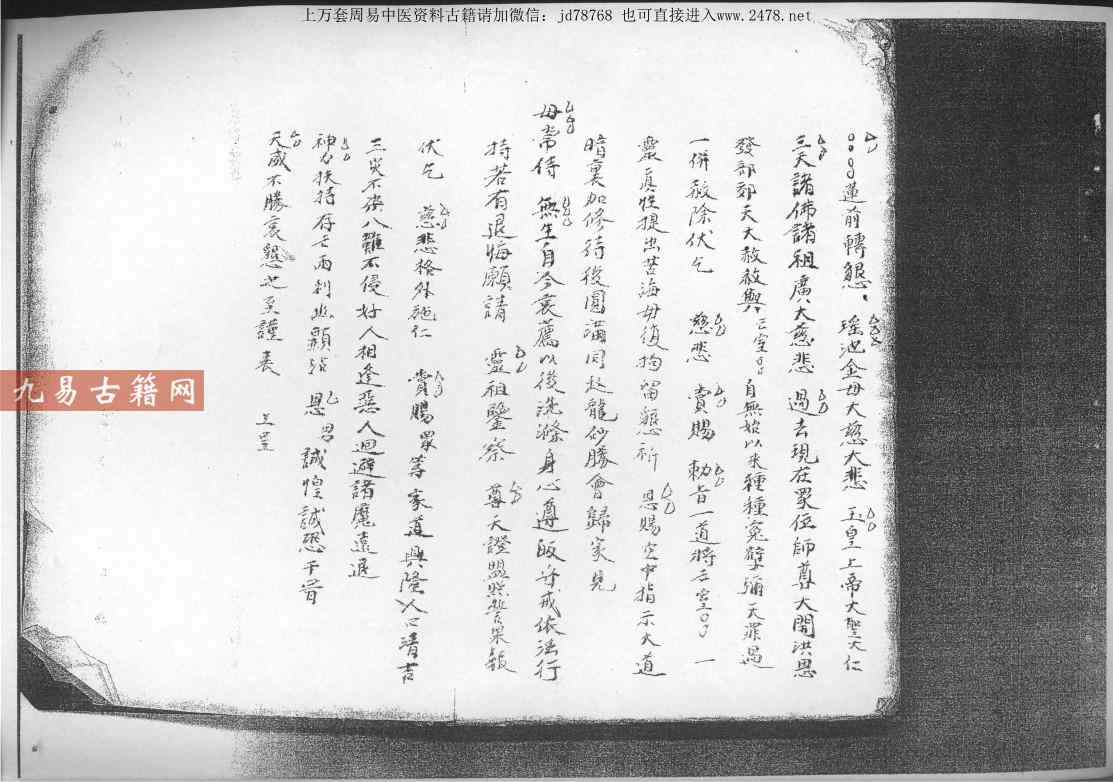 上万套周易中医资料古籍请加微信：jd78768 也可直接进入www.2478.net
蓮前轉懇 瑤池金母大慈大悲 玉皇上帝大聖大仁
三天諸佛諸祖廣大慈悲 過去現在眾位師尊大開洪恩
發部郊天大赦赦與 自無始以來種種冤孽彌天罪過
一併赦除伏乞 慈悲 賞賜 勅旨一道將 一
靈真性提出苦海毋復拘留懇祈 恩賜空中指示大道
暗裏加修待後圓滿同赴龍砂勝會歸家見
母常侍 無生自今哀薦以後洗滌身心遵皈守戒依法行
持若有退悔願請 靈祖鑒察 尊天證盟照誓果報
伏乞 慈悲格外施仁 賞賜眾等家道興隆人口清吉
三災不侵八難不侵好人相逢惡人迴避諸魔遠退
神力扶持存亡兩利 恩 誠惶誠恐干冒
天威不勝哀懇之至謹表 上呈
九易古籍网